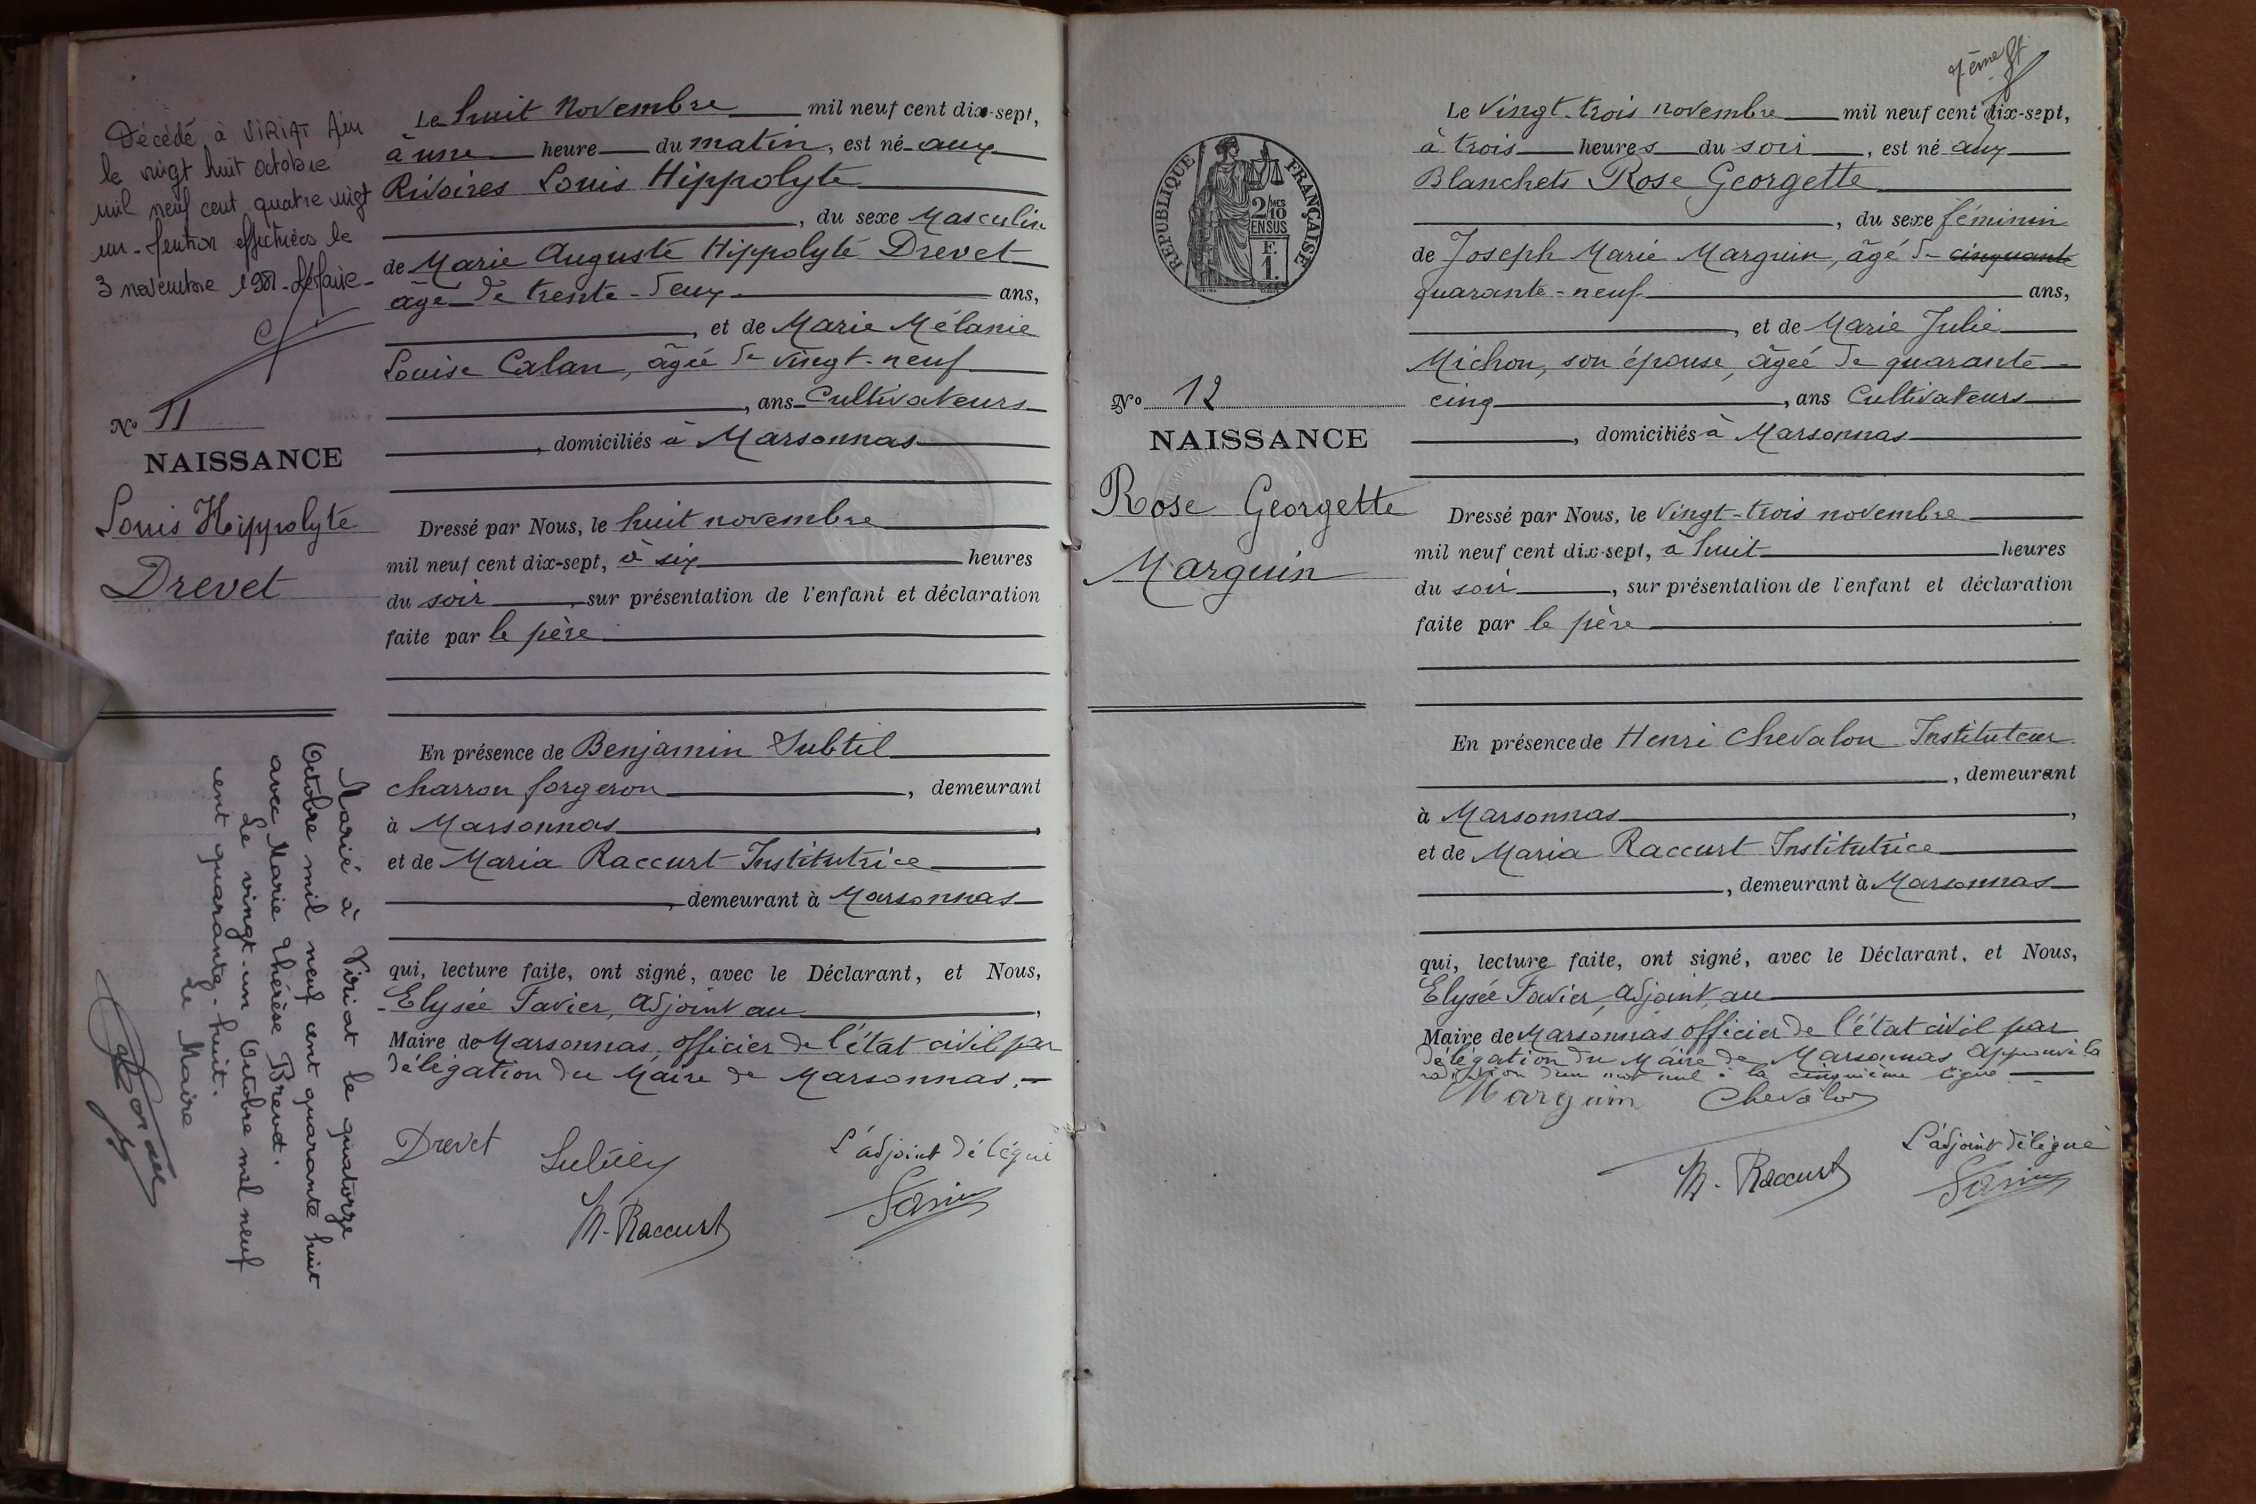 Décédé à VIRIAT Ain
le vingt huit octobre
mil neuf cent quatre vingt
un - Mention effectuée le
3 novembre 1981 - Le Maire -
No 11
NAISSANCE
Louis Hippolyte
Drevet
Le huit novembre mil neuf cent dix-sept,
à une heure du matin, est né aux
Rivoires Louis Hippolyte
, du sexe Masculin
de Marie Auguste Hippolyte Drevet
âgé de trente-deux ans,
, et de Marie Mélanie
Louise Calan, âgée de vingt-neuf
, ans Cultivateurs
, domiciliés à Marsonnas
Dressé par Nous, le huit novembre
mil neuf cent dix-sept, à six heures
du soir, sur présentation de l'enfant et déclaration
faite par le père
En présence de Benjamin Subtil
charron forgeron, demeurant
à Marsonnas,
et de Maria Raccurt Institutrice
, demeurant à Marsonnas
qui, lecture faite, ont signé, avec le Déclarant, et Nous,
Elysée Favier, adjoint au,
Maire de Marsonnas, officier de l'état civil par
délégation du Maire de Marsonnas.
Drevet
L'adjoint délégué
M. Raccurt
Favier
Marié à Viriat le quatorze
Octobre mil neuf cent quarante huit
avec Marie Thérèse Brevet.
Le vingt-un Octobre mil neuf
cent quarante-huit.
Le Maire
7ème ft
RÉPUBLIQUE FRANÇAISE
2/10 MES
EN SUS
F.
1.
No 12
NAISSANCE
Rose Georgette
Marguin
Le vingt-trois novembre mil neuf cent dix-sept,
à trois heures du soir, est né aux
Blanchets Rose Georgette
, du sexe féminin
de Joseph Marie Marguin, âgé de cinquante
quarante-neuf ans,
, et de Marie Julie
Michon, son épouse, âgée de quarante
cinq, ans Cultivateurs
, domiciliés à Marsonnas
Dressé par Nous, le vingt-trois novembre
mil neuf cent dix-sept, à huit heures
du soir, sur présentation de l'enfant et déclaration
faite par le père
En présence de Henri Chevalon Instituteur
, demeurant
à Marsonnas,
et de Maria Raccurt Institutrice
, demeurant à Marsonnas
qui, lecture faite, ont signé, avec le Déclarant, et Nous,
Elysée Favier, adjoint au
Maire de Marsonnas officier de l'état civil par
délégation du Maire de Marsonnas approuvé la
radiation d'un mot nul à la cinquième ligne
Marguin Chevalon
L'adjoint délégué
M. Raccurt
Favier